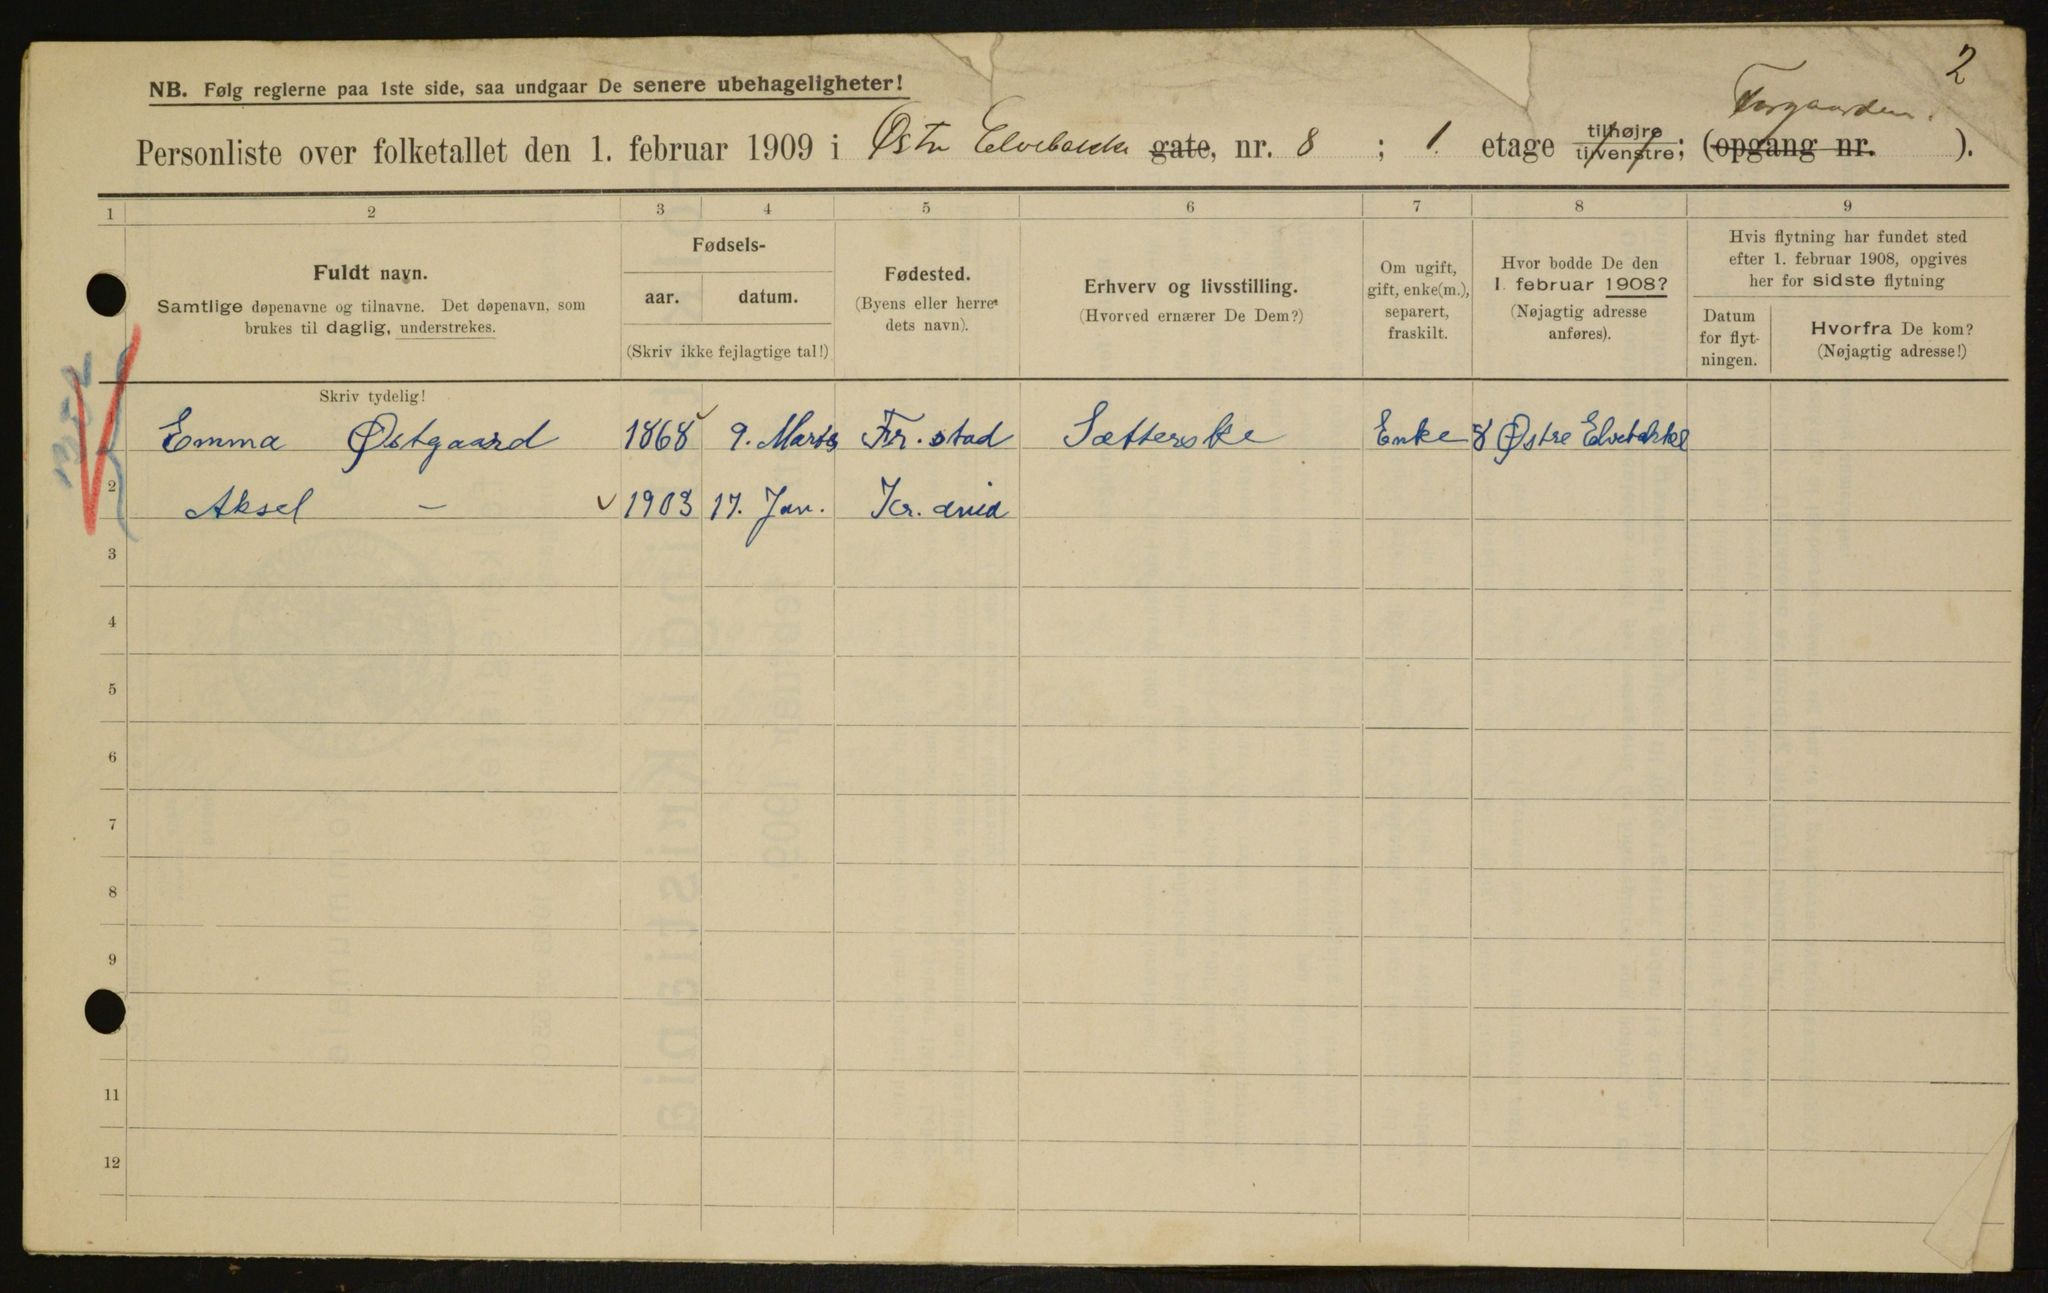 2
NB. Følg reglerne paa 1ste side, saa undgaar De senere ubehageligheter!
Forgaarden.
Personliste over folketallet den 1. februar 1909 i Østre Elvebakke gate, nr. 8 ; 1. etage tilhøjre tilvenstre; (opgang nr. ).
1 2 3 4 5 6 7 8 9
Fuldt navn.
Samtlige døpenavne og tilnavne. Det døpenavn, som
brukes til daglig, understrekes.
Fødsels-
aar. datum.
(Skriv ikke fejlagtige tal!)
Fødested.
(Byens eller herre-
dets navn).
Erhverv og livsstilling.
(Hvorved ernærer De Dem?)
Om ugift,
gift, enke(m.),
separert,
fraskilt.
Hvor bodde De den
1. februar 1908?
(Nøjagtig adresse
anføres).
Hvis flytning har fundet sted
efter 1. februar 1908, opgives
her for sidste flytning
Datum
for flyt-
ningen.
Hvorfra De kom?
(Nøjagtig adresse!)
Skriv tydelig!
Emma Østgaard 1868 9. Marts Fr. stad Sætterske Enke 8 Østre Elvebakke
2 Aksel - 1903 17. Jan. Kr. ania
3
4
5
6
7
8
9
11
12